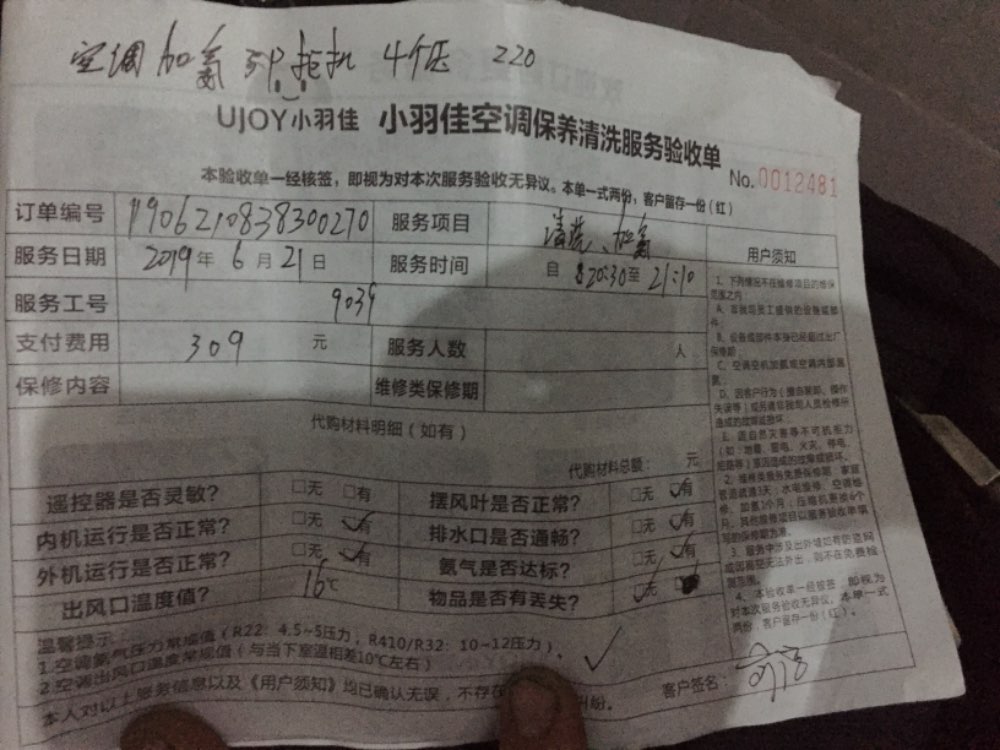 空调加氟 3P挂机 4个压 220
UJOY小羽佳 小羽佳空调保养清洗服务验收单
No.0012481
本验收单一经核签，即视为对本次服务验收无异议。本单一式两份，客户留存一份（红）
订单编号 1906210838300270 服务项目 清洗、加氟 用户须知
服务日期 2019年6月21日 服务时间 自 20:30至 21:10
服务工号 9039
支付费用 309 元 服务人数 人
保修内容 维修类保修期
代购材料明细（如有）
代购材料总额： 元
遥控器是否灵敏？ □无 □有 摆风叶是否正常？ □无 ☑有
内机运行是否正常？ □无 ☑有 排水口是否通畅？ □无 ☑有
外机运行是否正常？ □无 ☑有 氟气是否达标？ □无 ☑有
出风口温度值？ 16℃ 物品是否有丢失？ ☑无
1、下列情况不在维修项目的维保
范围之内：
A、非我司员工提供的设备或部
件；
B、设备或部件本身已经超过出厂
保修期；
C、空调空机加氟或空调内部漏
氟；
D、因客户行为（擅自装卸、操作
失误等）或另请非我司人员检修所
造成的故障或损坏。
E、因自然灾害等不可抗能力
（如：地震、雷电、火灾、停电、
造成的故障或损坏。
3、服务中涉及出外墙如有防盗网
或因高空无法外出，则不在免费检
测范围。
4、本验收单一经核签，即视为
对本次服务验收无异议。本单一式
两份，客户留存一份（红）。
温馨提示：
1.空调氟气压力常规值（R22：4.5~5压力，R410/R32：10~12压力）。
2.空调出风口温度常规值（与当下室温相差10℃左右）
本人对以上服务信息以及《用户须知》均已确认无误，不存在 纠纷。
客户签名：